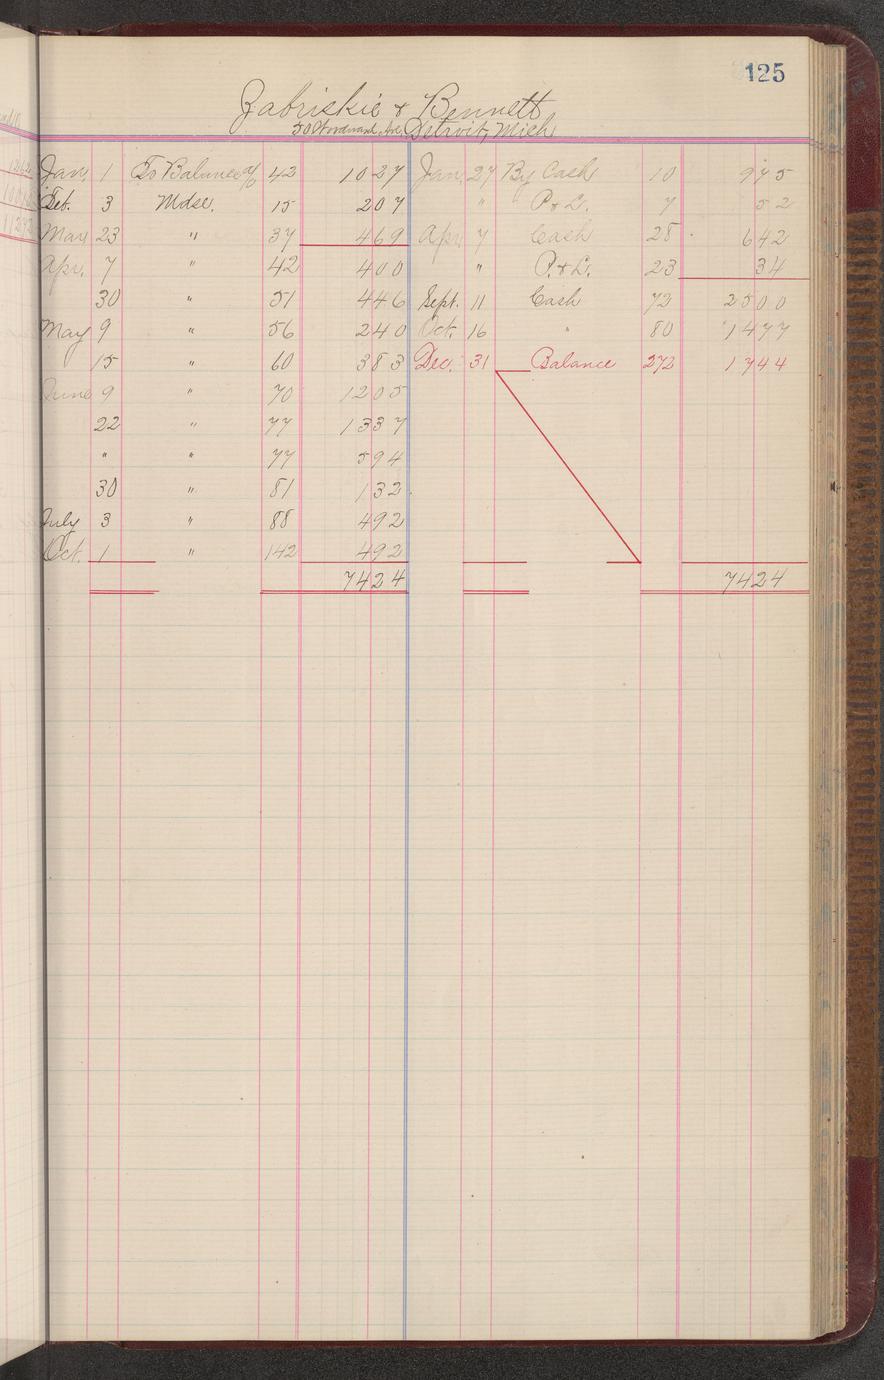 125
Zabriskie & Bennett
50 Woodward Ave. Detroit, Mich
Jan. 1 To Balance a/c 42 1027 Jan. 27 By Cash 10 975
Feb. 3 Mdse. 15 207 " P. & L. 7 52
Mar. 23 " 37 469 Apr. 7 Cash 28 642
Apr. 7 " 42 400 " P. & L. 23 34
30 " 51 446 Sept. 11 Cash 73 2500
May 9 " 56 240 Oct. 16 " 80 1477
15 " 60 383 Dec. 31 Balance 272 1744
June 9 " 70 1205
22 " 77 1337
" " 77 594
30 " 81 132
July 3 " 88 492
Oct. 1 " 142 492
7424 7424